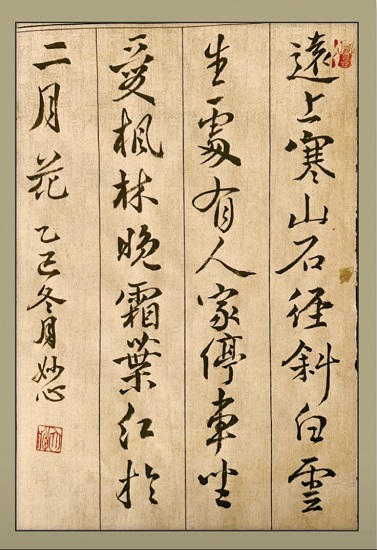 遠上寒山石徑斜白雲
生處有人家停車坐
愛楓林晚霜葉紅於
二月花 乙巳冬月妙心